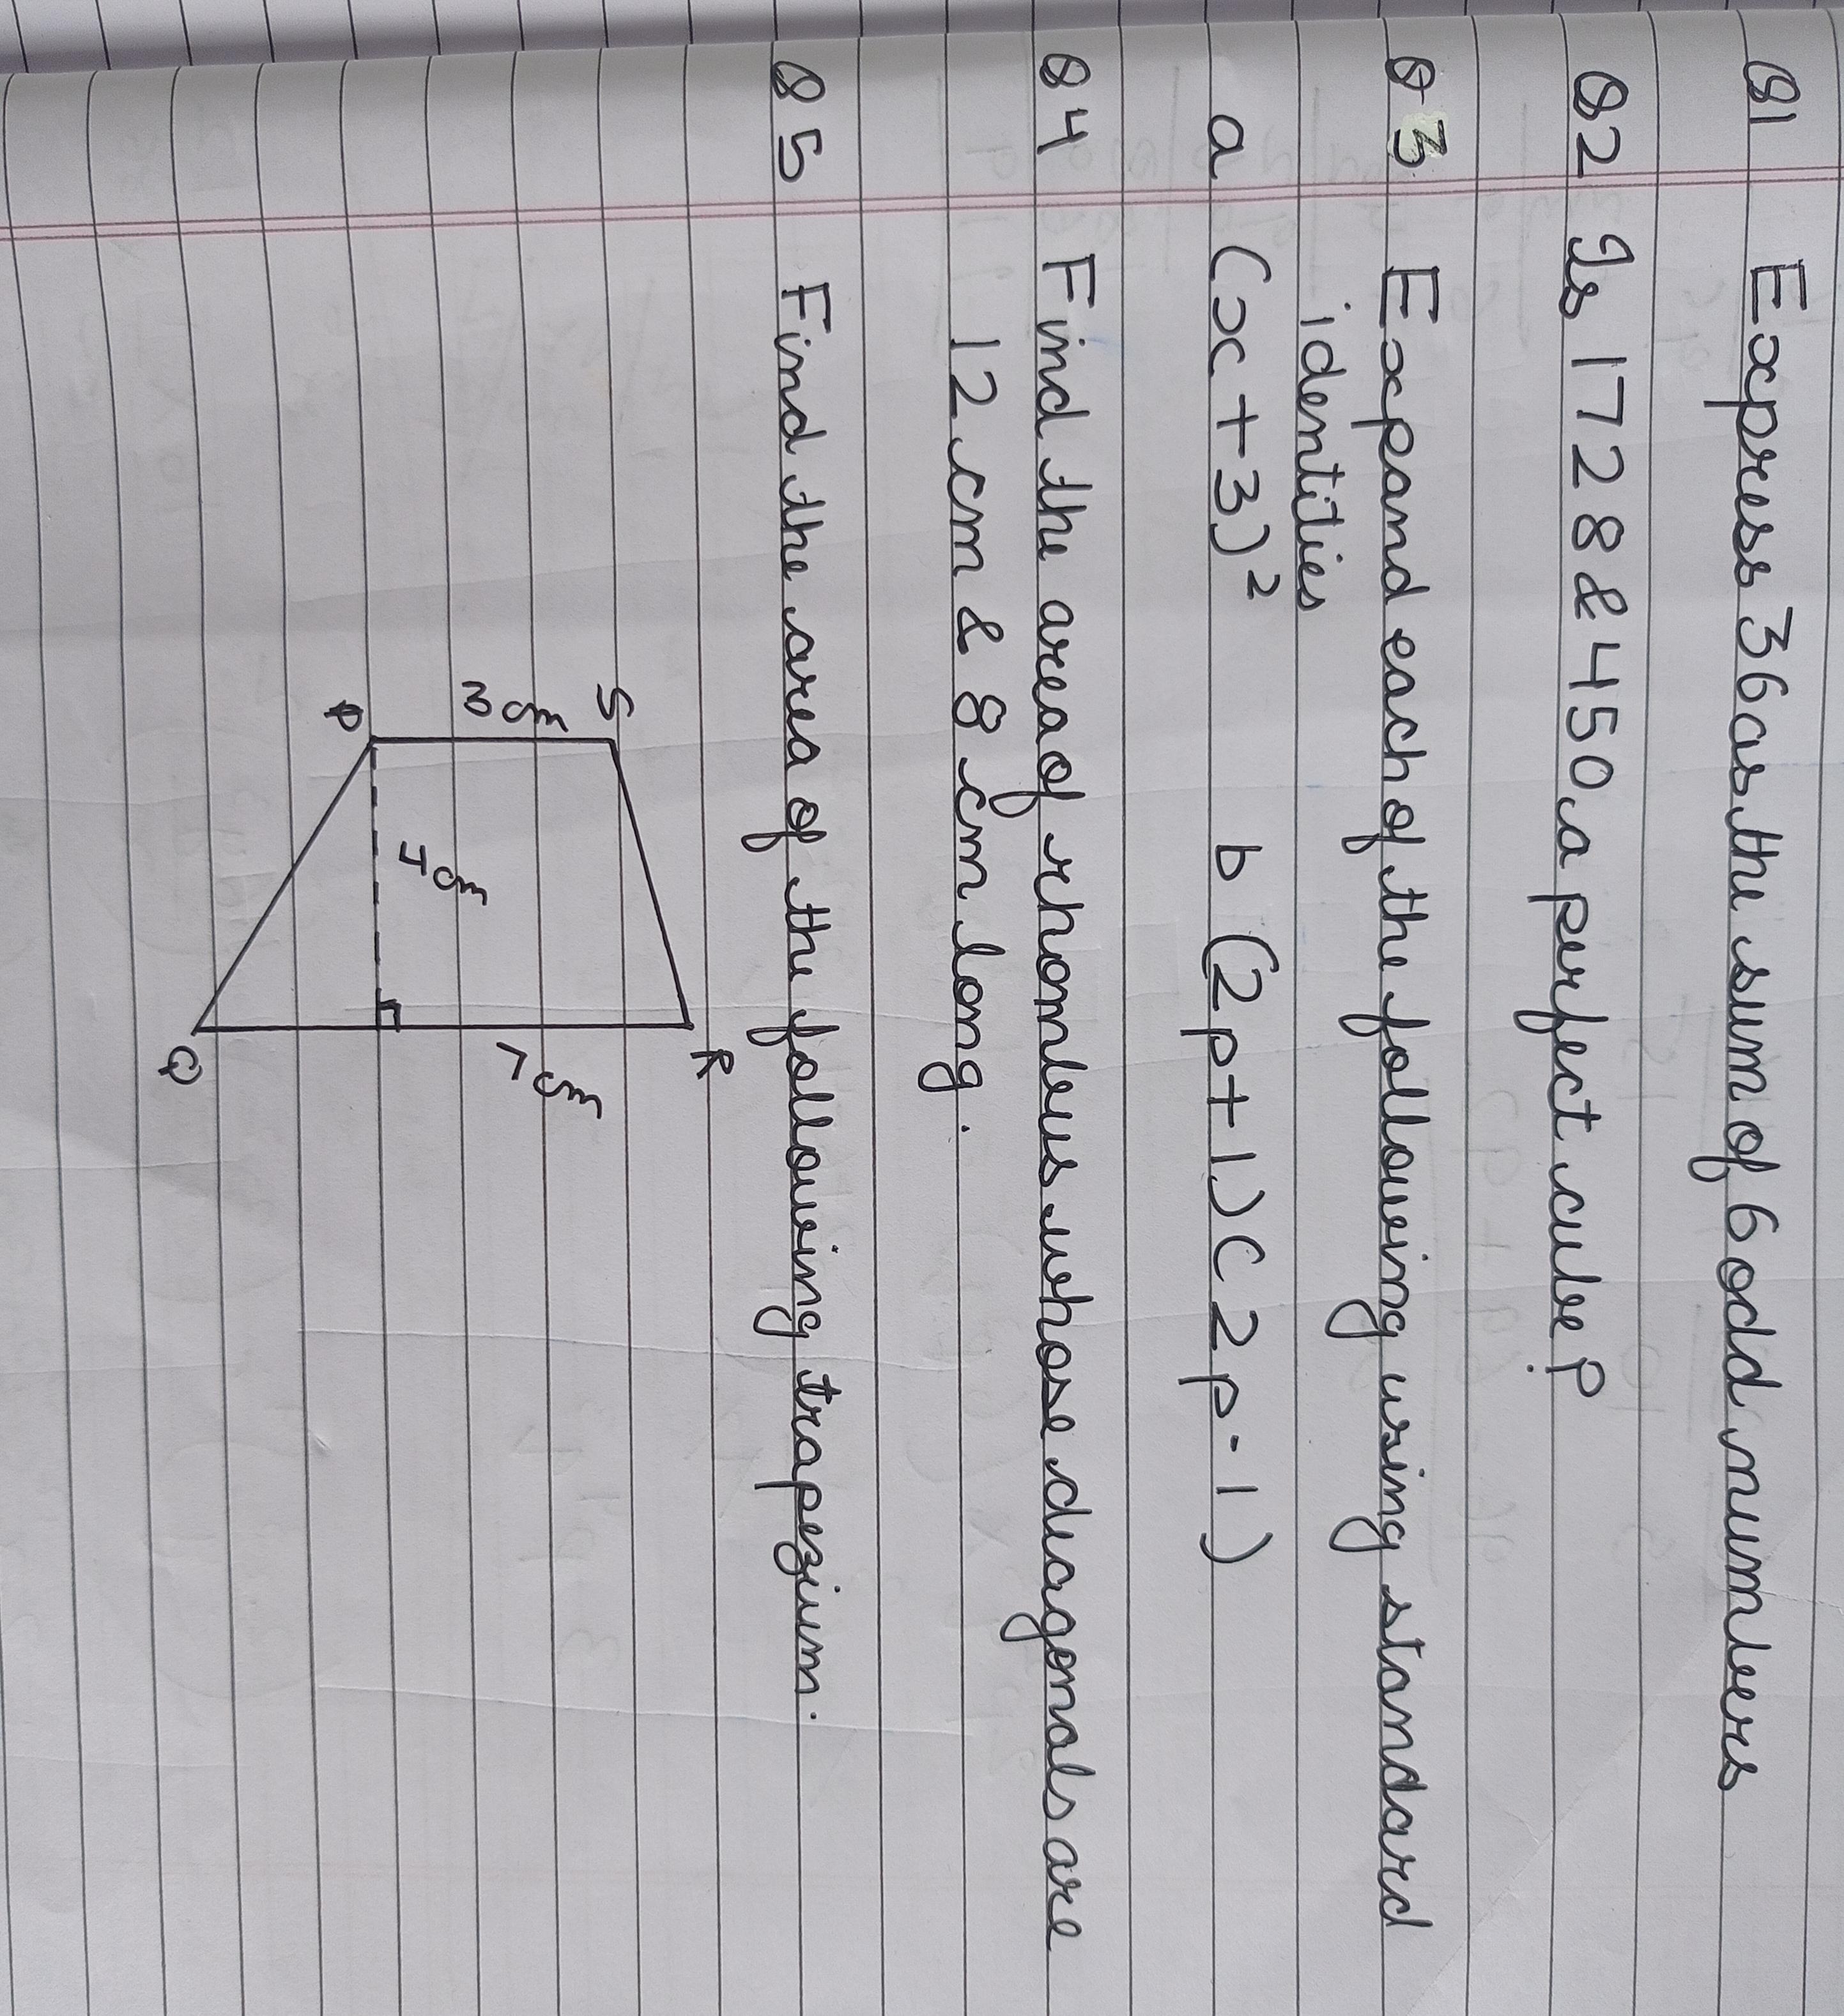 Q1 Express 36 as the sum of 6 odd numbers
Q2 Is 1728 & 450 a perfect cube?
Q3 Expand each of the following using standard
identities
a (x+3)² b (2p+1)(2p-1)
Q4 Find the area of rhombus whose diagonals are
12 cm & 8 cm long.
Q5 Find the area of the following trapezium.
R
S
3cm
7cm
4cm
P
Q